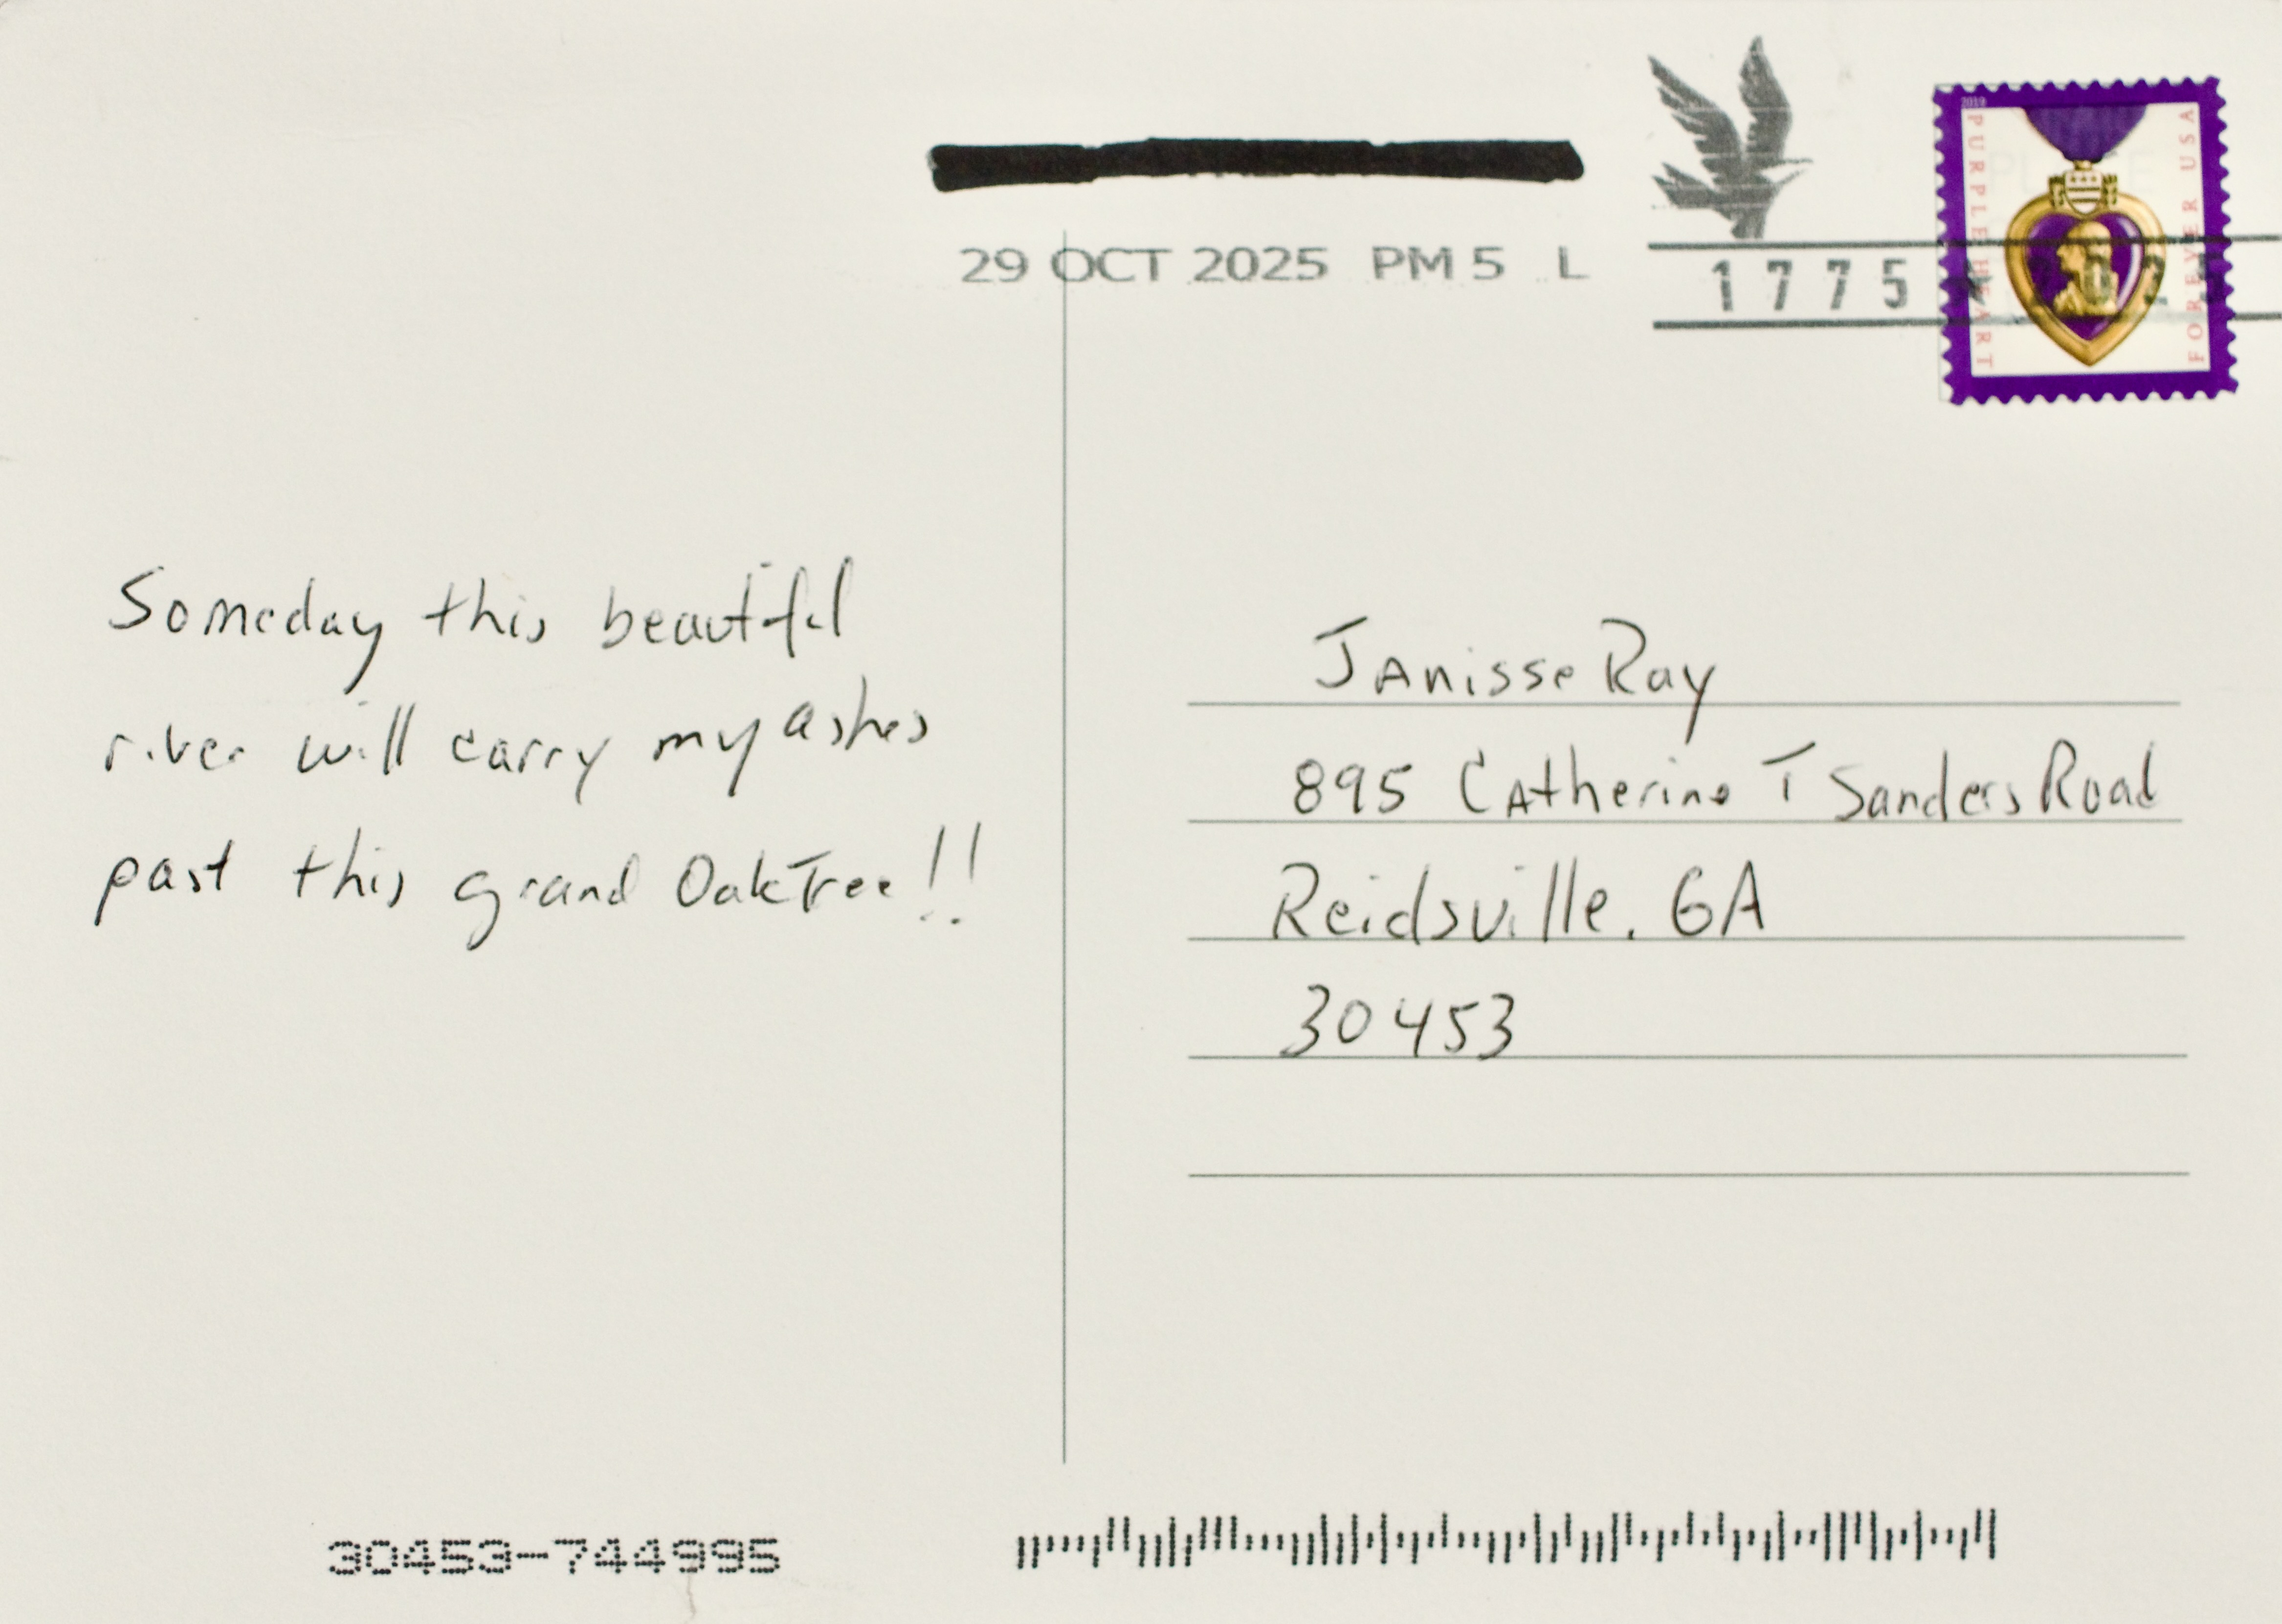 29 OCT 2025 PM 5 L
1775
2019
PURPLE HEART
FOREVER USA
Someday this beautiful
river will carry my ashes
past this grand Oak Tree!!
Janisse Ray
895 Catherine T Sanders Road
Reidsville, GA
30453
30453-744995